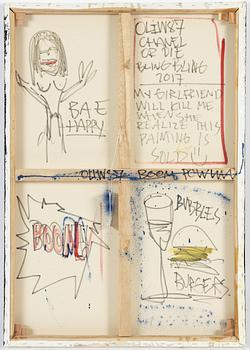 OLIW87
CHANEL
OR DIE
BLING BLING
2017
MY GIRLFRIEND
WILL KILL ME
WHEN SHE
REALIZE THIS
PAINTING IS
SOLD!
BAE
HAPPY
OLIW87 BOOM POW
BOOM!
BUBBLES
BURGERS